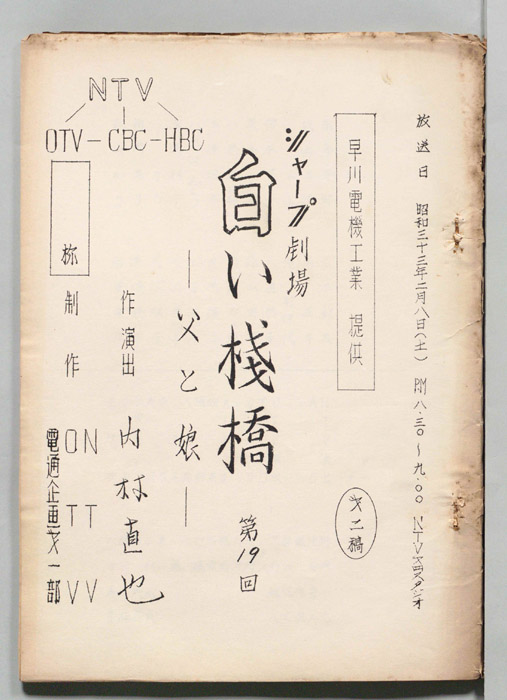 放送日 昭和三十三年二月八日(土) PM八・三〇～九・〇〇 NTV
早川電機工業 提供
才二稿
シャープ劇場
白い桟橋
第19回
―父と娘―
作 演出 内村直也
NTV
OTV－CBC－HBC
制作 NTV
OTV
電通企画才一部
様